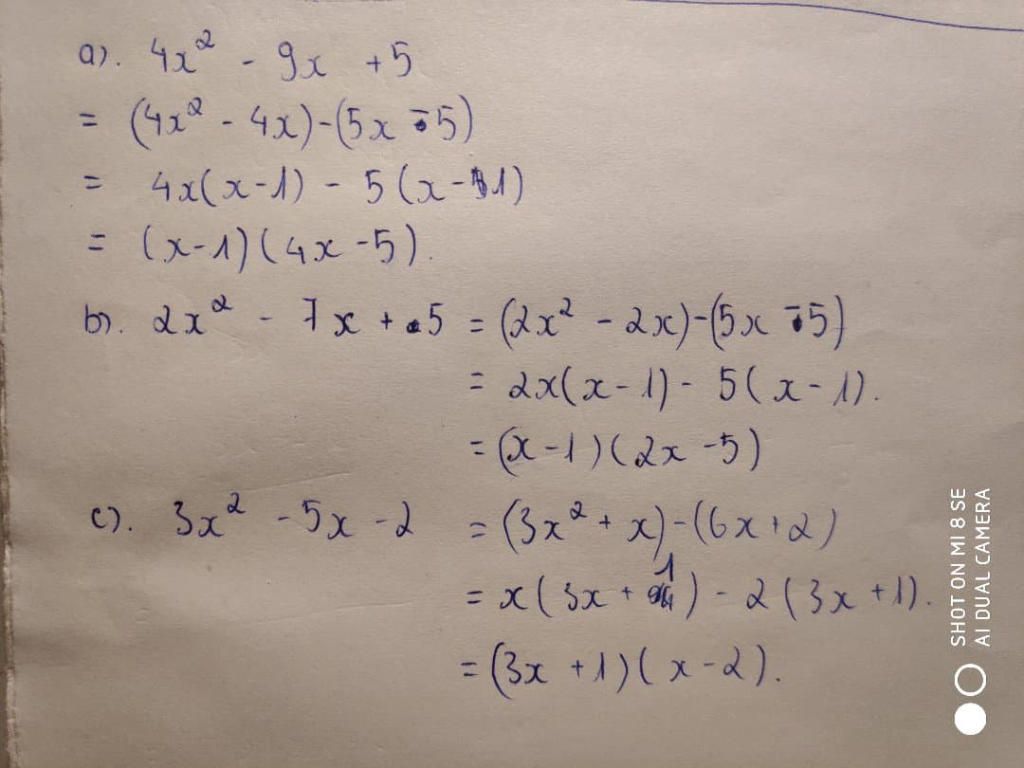 a). 4x² - 9x + 5
= (4x² - 4x) - (5x - 5)
= 4x(x-1) - 5(x-1)
= (x-1)(4x-5).
b). 2x² - 7x + 5 = (2x² - 2x) - (5x - 5)
= 2x(x-1) - 5(x-1).
= (x-1)(2x-5)
c). 3x² - 5x - 2 = (3x² + x) - (6x+2)
= x(3x+1) - 2(3x+1).
= (3x+1)(x-2).
SHOT ON MI 8 SE
AI DUAL CAMERA